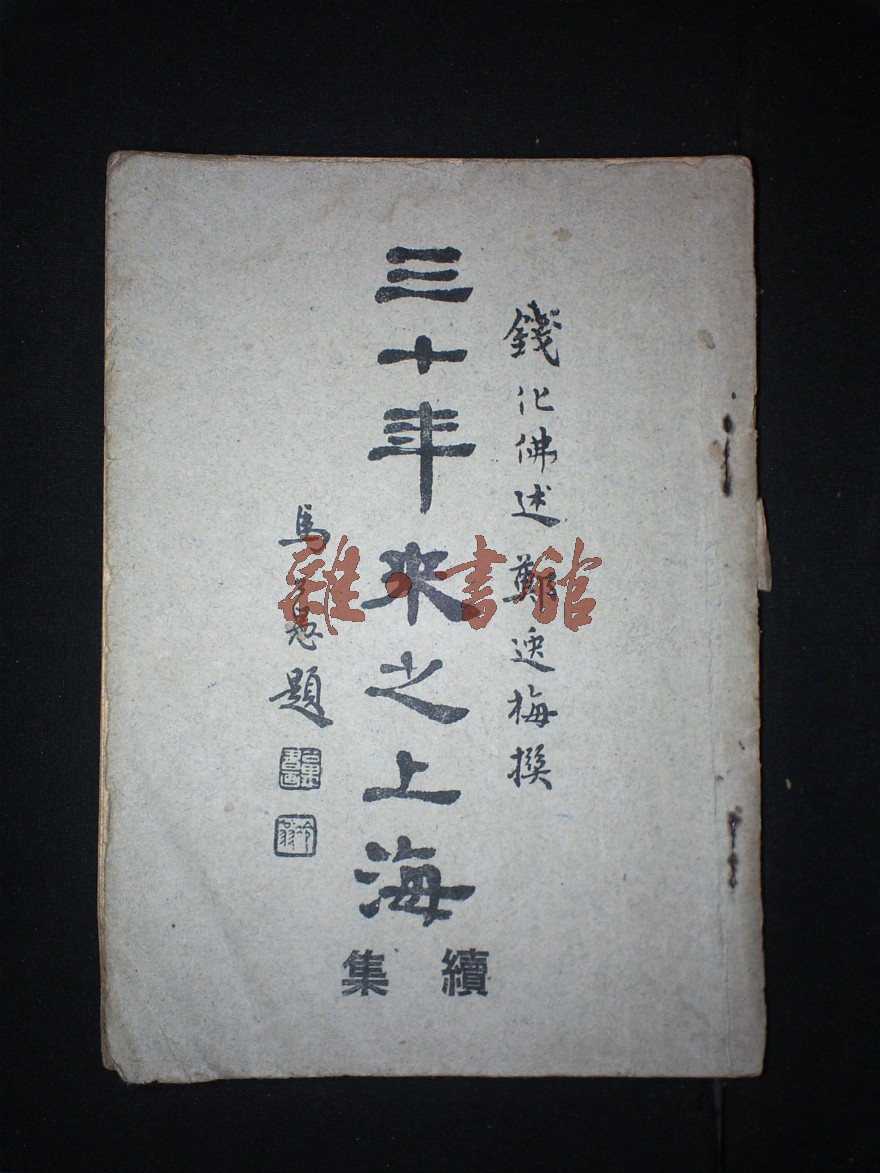 錢化佛述 鄭逸梅撰
三十年來之上海
續集
馬公愚題
雜·書館